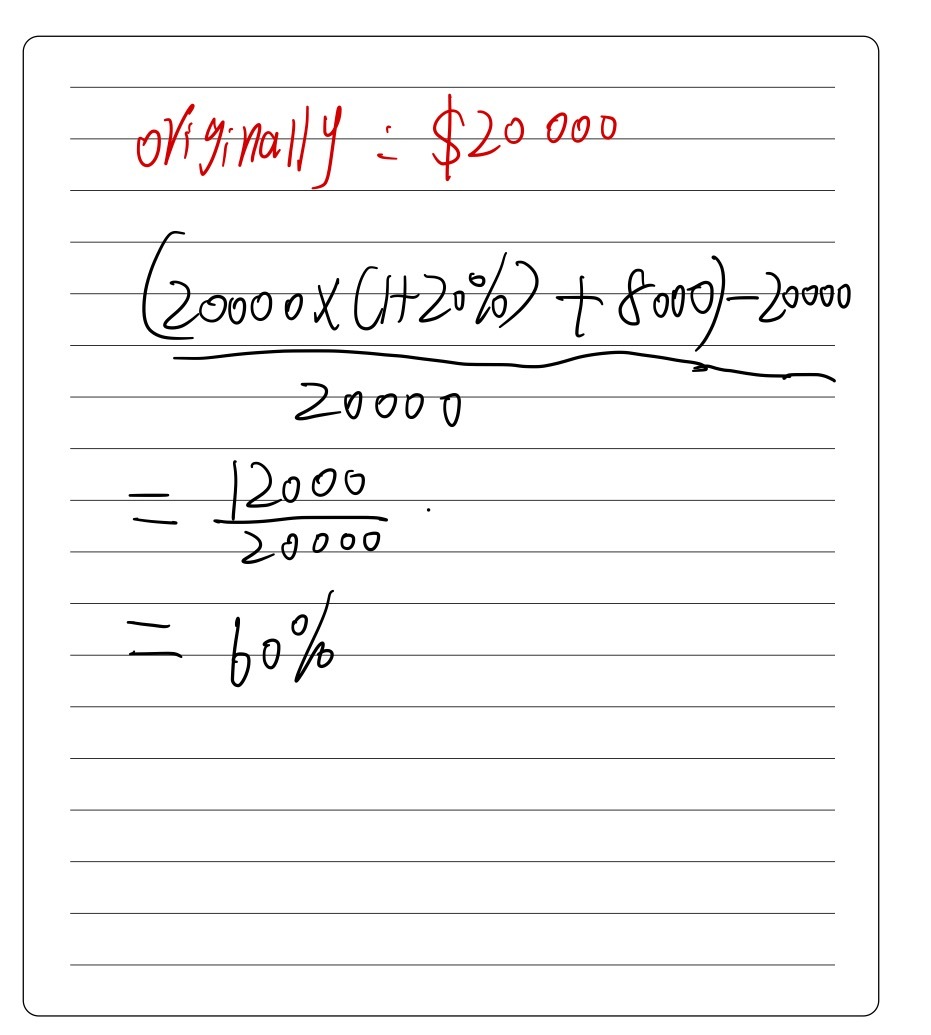 originally : $20 000
(20000×(1+20%) + 8000)-20000
20000
= 12000
20000
= 60%